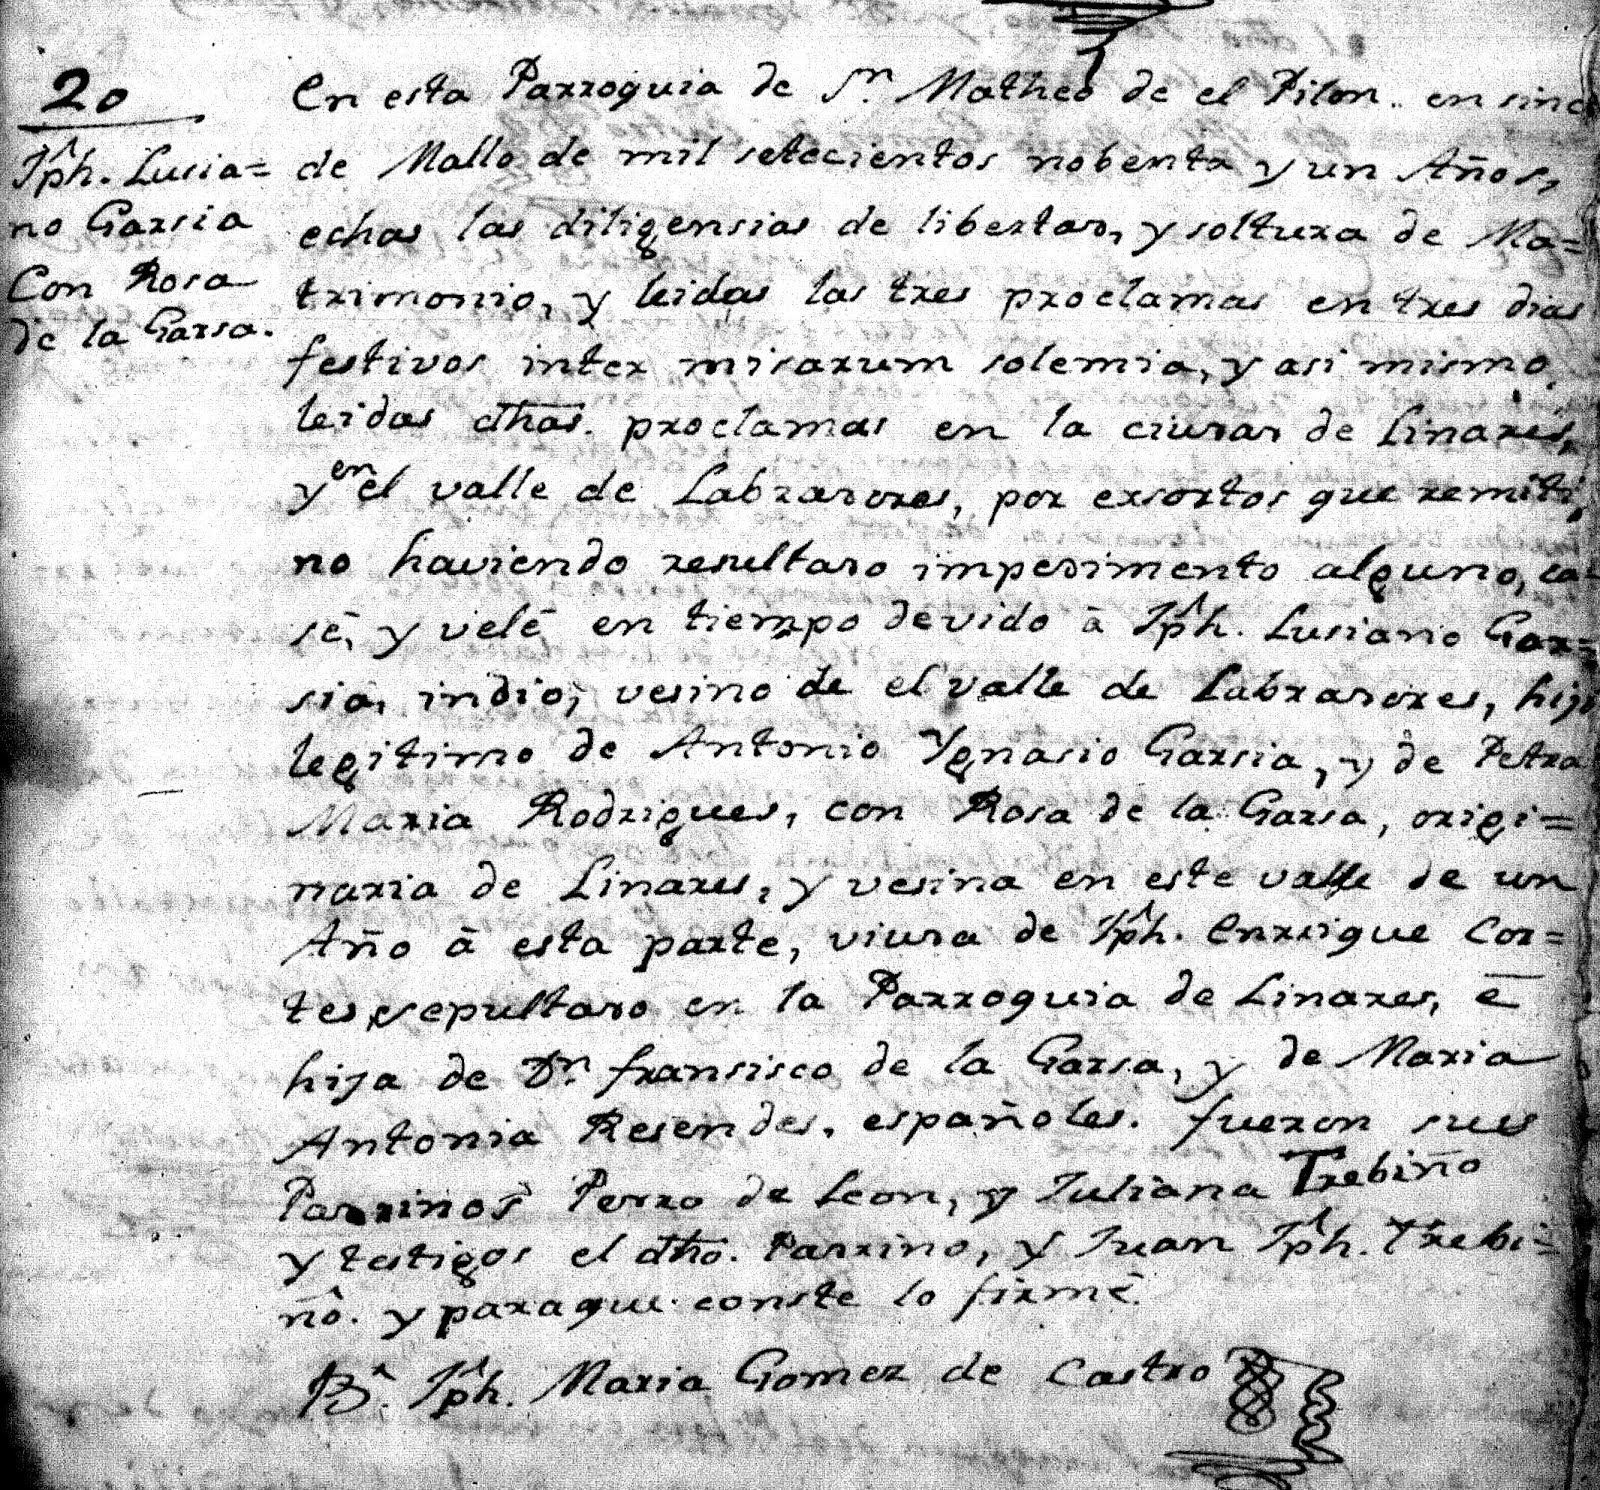 20
Jph. Lusia=
no Garsia
Con Rosa
de la Garsa.
En esta Parroquia de Sn. Matheo de el Pilon. en sinco
de Mallo de mil setecientos nobenta y un Años,
echas las diligensias de libertad, y soltura de Ma=
trimonio, y leidas las tres proclamas en tres dias
festivos inter misarum solemia, y asi mismo,
leidas dhas. proclamas en la ciudad de Linares,
y en el valle de Labradores, por exsortos que remiti,
no haviendo resultado impedimento alguno, ca=
sé, y velé en tiempo devido â Jph. Lusiano Gar=
sia, indio, vesino de el valle de Labradores, hijo
legitimo de Antonio Ygnasio Garsia, y de Petra
Maria Rodrigues, con Rosa de la Garsa, origi=
naria de Linares, y vesina en este valle de un
Año â esta parte, viuda de Jph. Enrrique Cor=
tes, sepultado en la Parroquia de Linares, e
hija de Dn. fransisco de la Garsa, y de Maria
Antonia Resendes, españoles. fueron sus
Padrinos Pedro de Leon, y Juliana Trebiño
y testigos el dho. Padrino, y Juan Jph. Trebi=
ño. y para que conste lo firmé.
Br. Jph. Maria Gomez de Castro